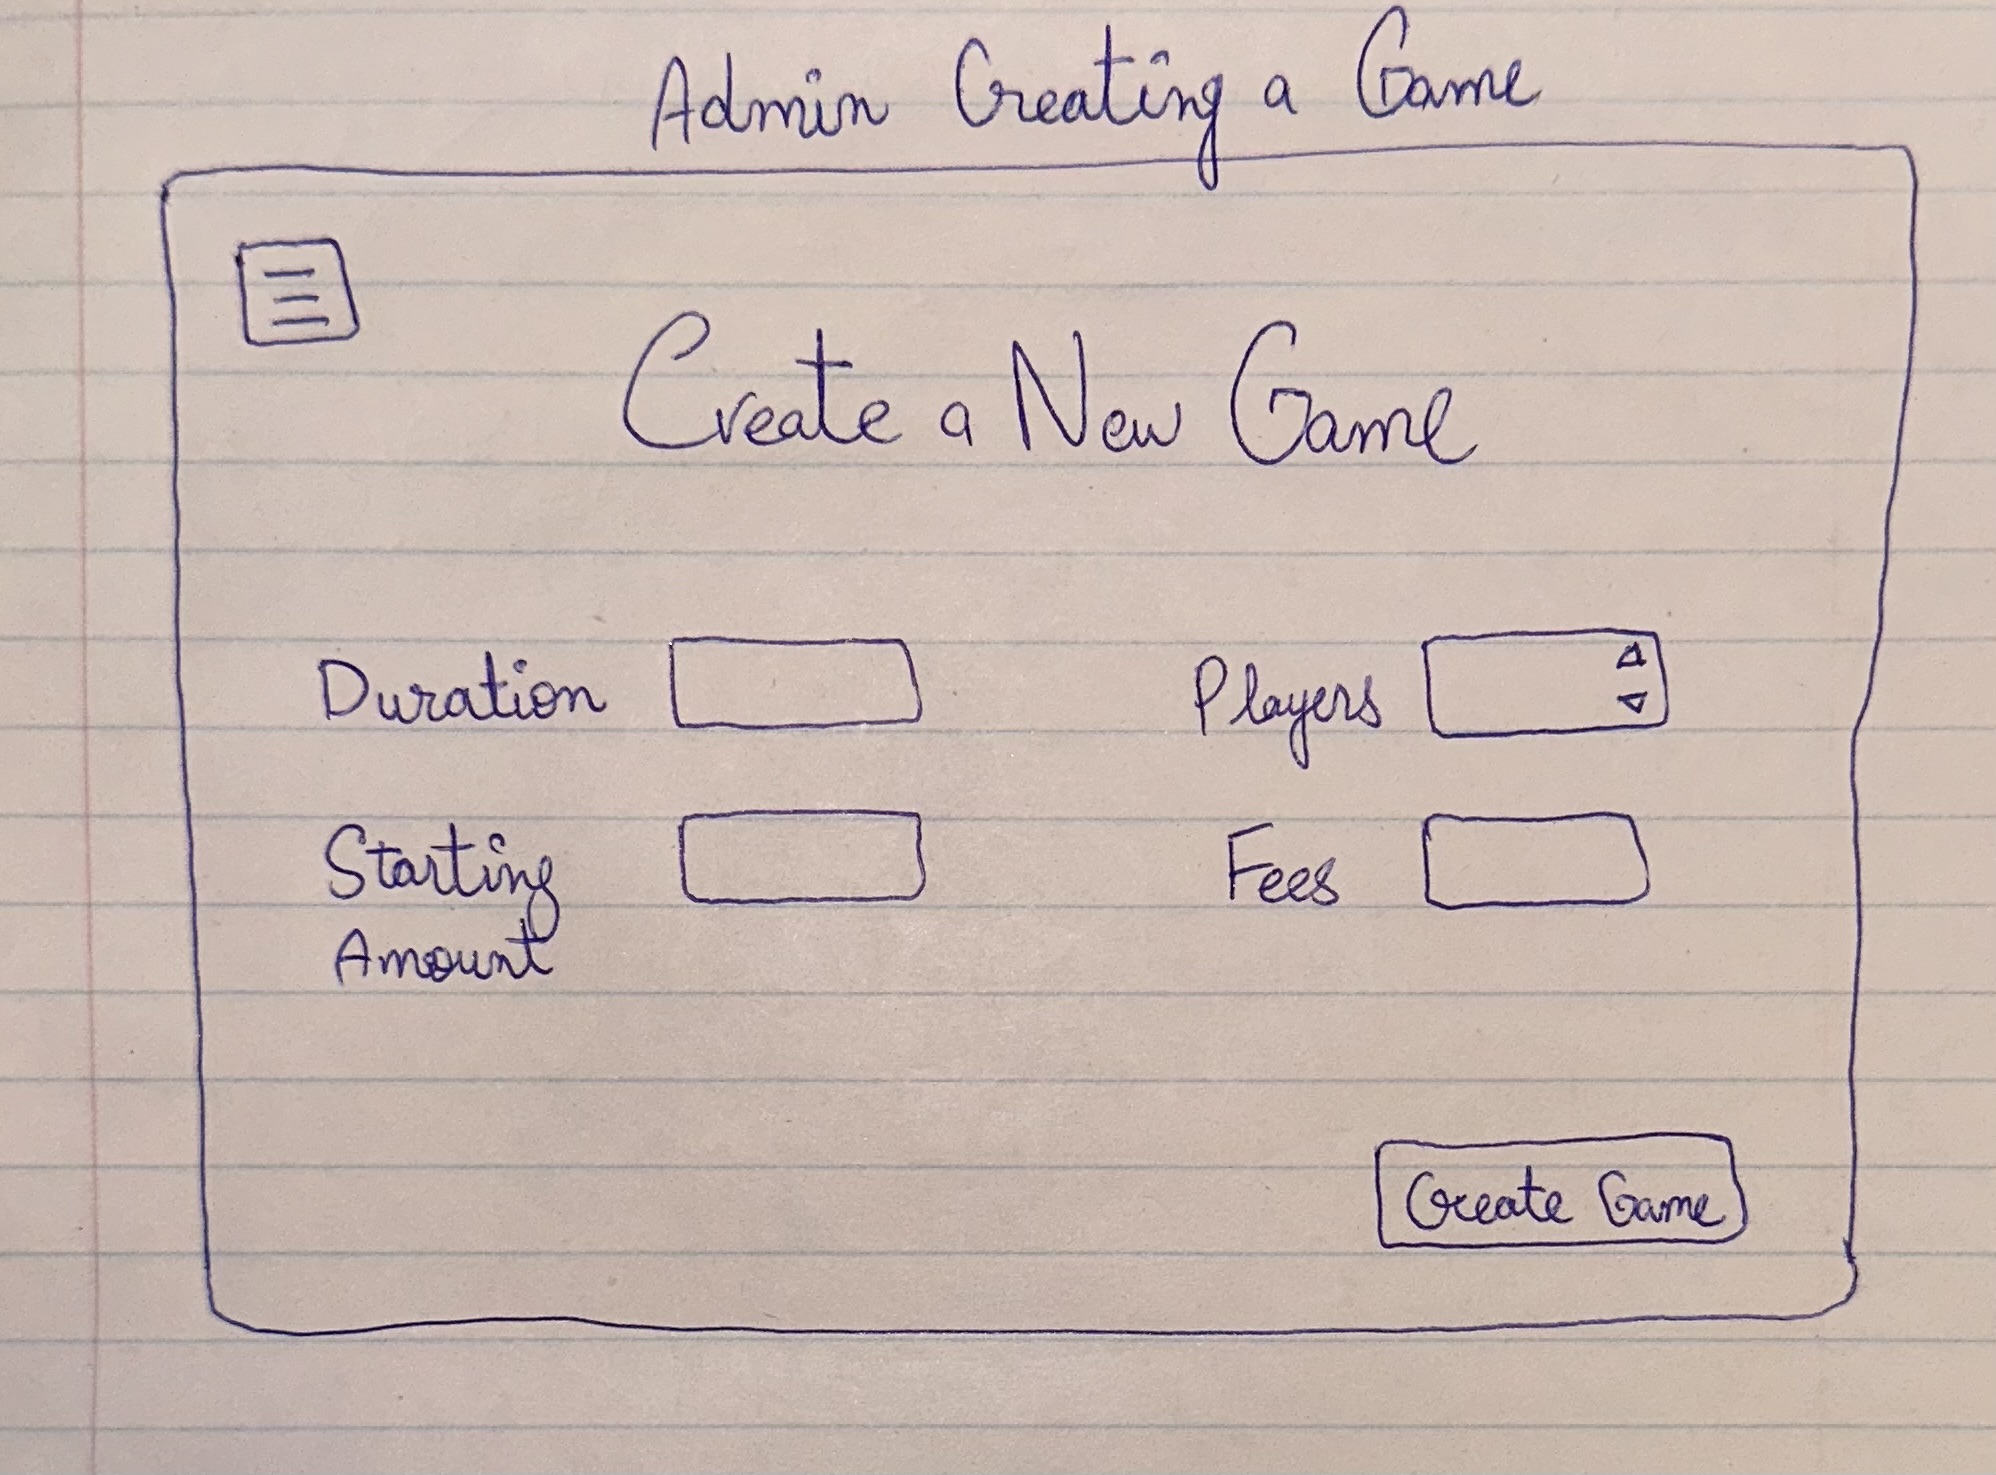 Admin Creating a Game
Create a New Game
Duration
Players
Starting
Amount
Fees
Create Game